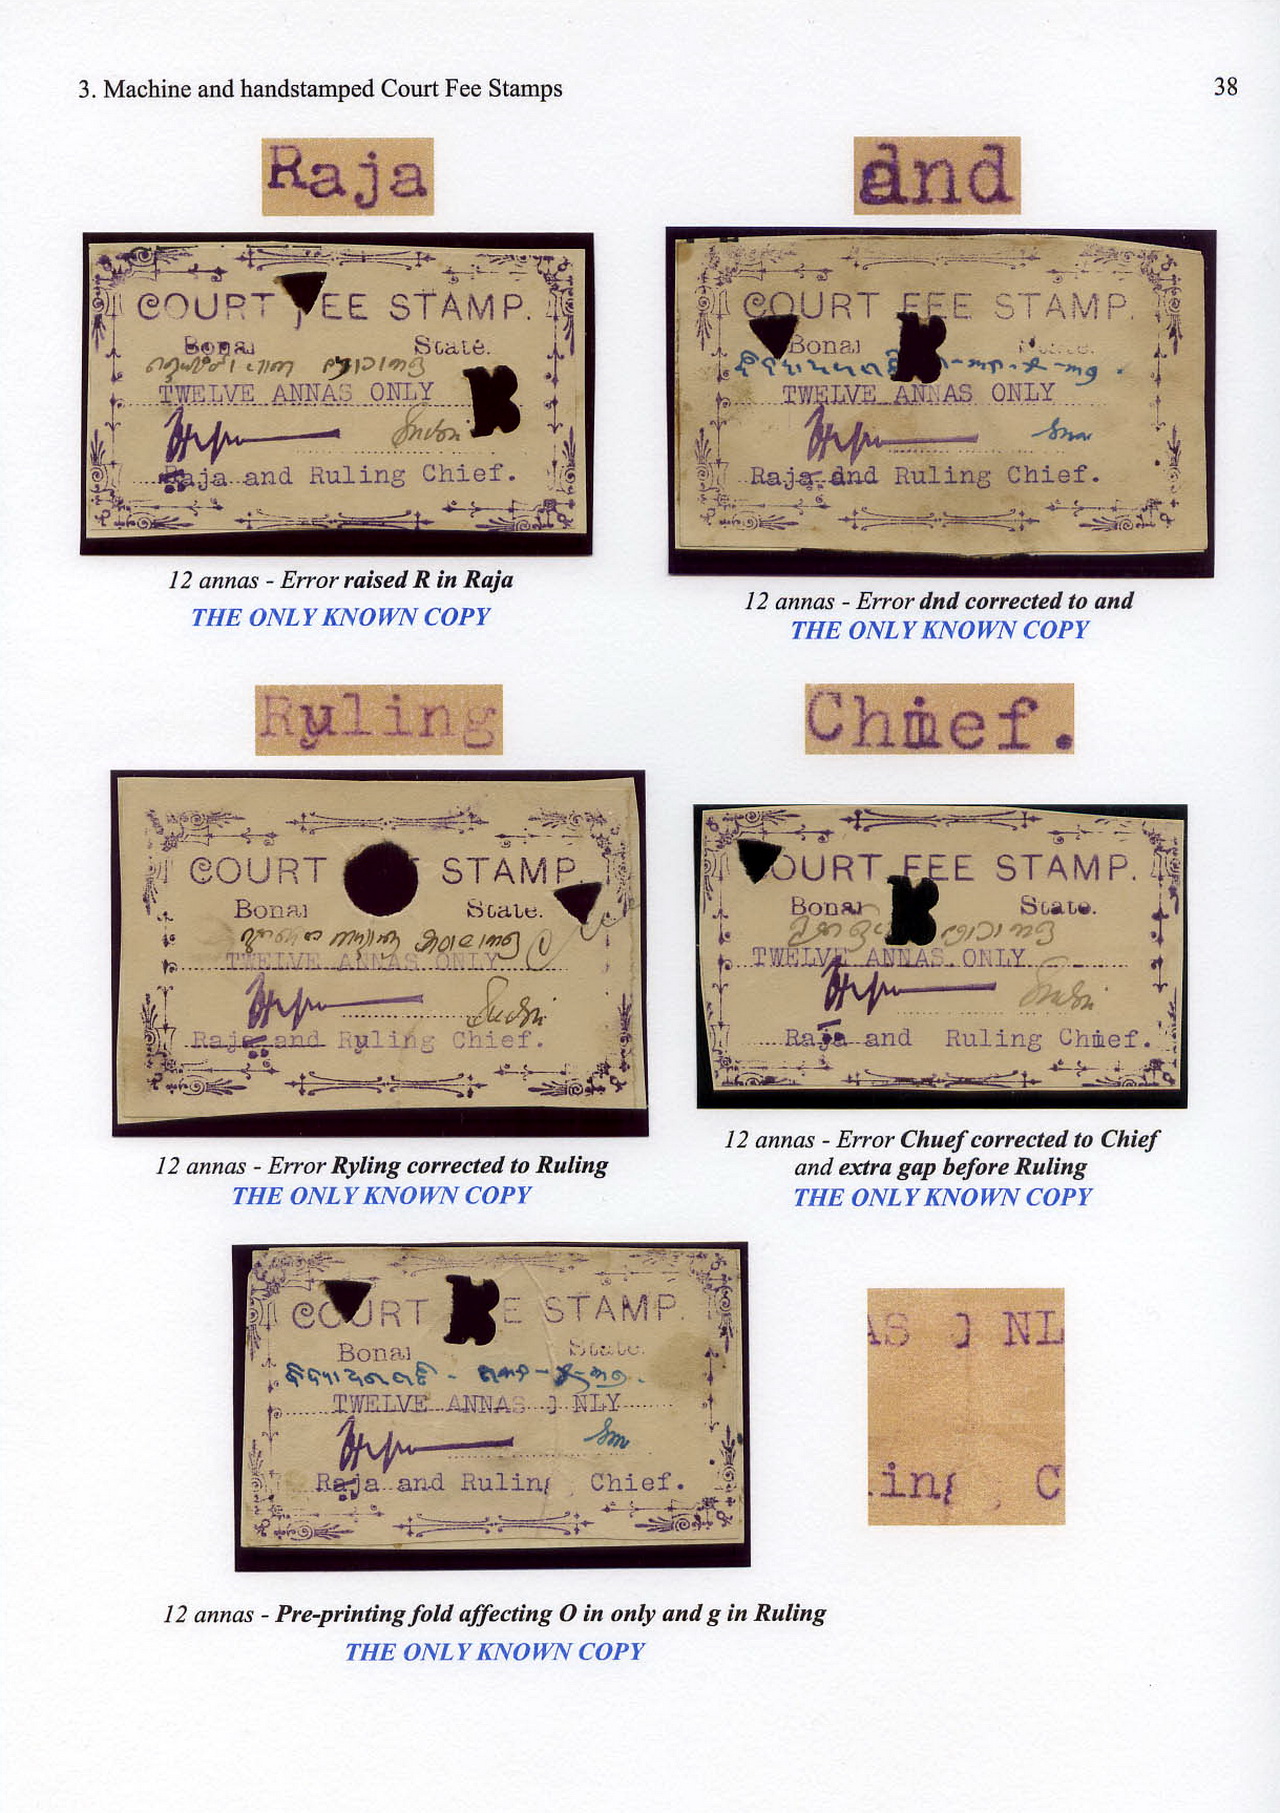 3. Machine and handstamped Court Fee Stamps
38
Raja
dnd
COURT FEE STAMP.
Bonai State.
TWELVE ANNAS ONLY
Raja and Ruling Chief.
12 annas - Error raised R in Raja
THE ONLY KNOWN COPY
COURT FEE STAMP.
Bonai State.
TWELVE ANNAS ONLY
Raja dnd Ruling Chief.
12 annas - Error dnd corrected to and
THE ONLY KNOWN COPY
Ryling
Chief.
COURT STAMP.
Bonai State.
TWELVE ANNAS ONLY
Raja and Ryling Chief.
12 annas - Error Ryling corrected to Ruling
THE ONLY KNOWN COPY
COURT FEE STAMP.
Bonai State.
TWELVE ANNAS ONLY
Raja and Ruling Chief.
12 annas - Error Chuef corrected to Chief
and extra gap before Ruling
THE ONLY KNOWN COPY
COURT E STAMP.
Bonai State.
TWELVE ANNAS O NLY
Raja and Ruling Chief.
AS O NL
ing C
12 annas - Pre-printing fold affecting O in only and g in Ruling
THE ONLY KNOWN COPY